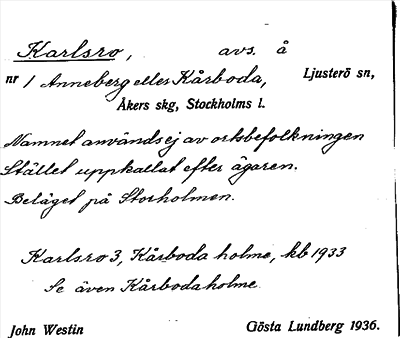 Karlsro, avs. å
nr 1 Anneberg eller Kårboda, Ljusterö sn,
Åkers skg, Stockholms l.
Namnet användsej av ortsbefolkningen
Stället uppkallat efter ägaren.
Beläget på Storholmen.
Karlsro 3, Kårboda holme, kb 1933
Se även Kårbodaholme
John Westin Gösta Lundberg 1936.